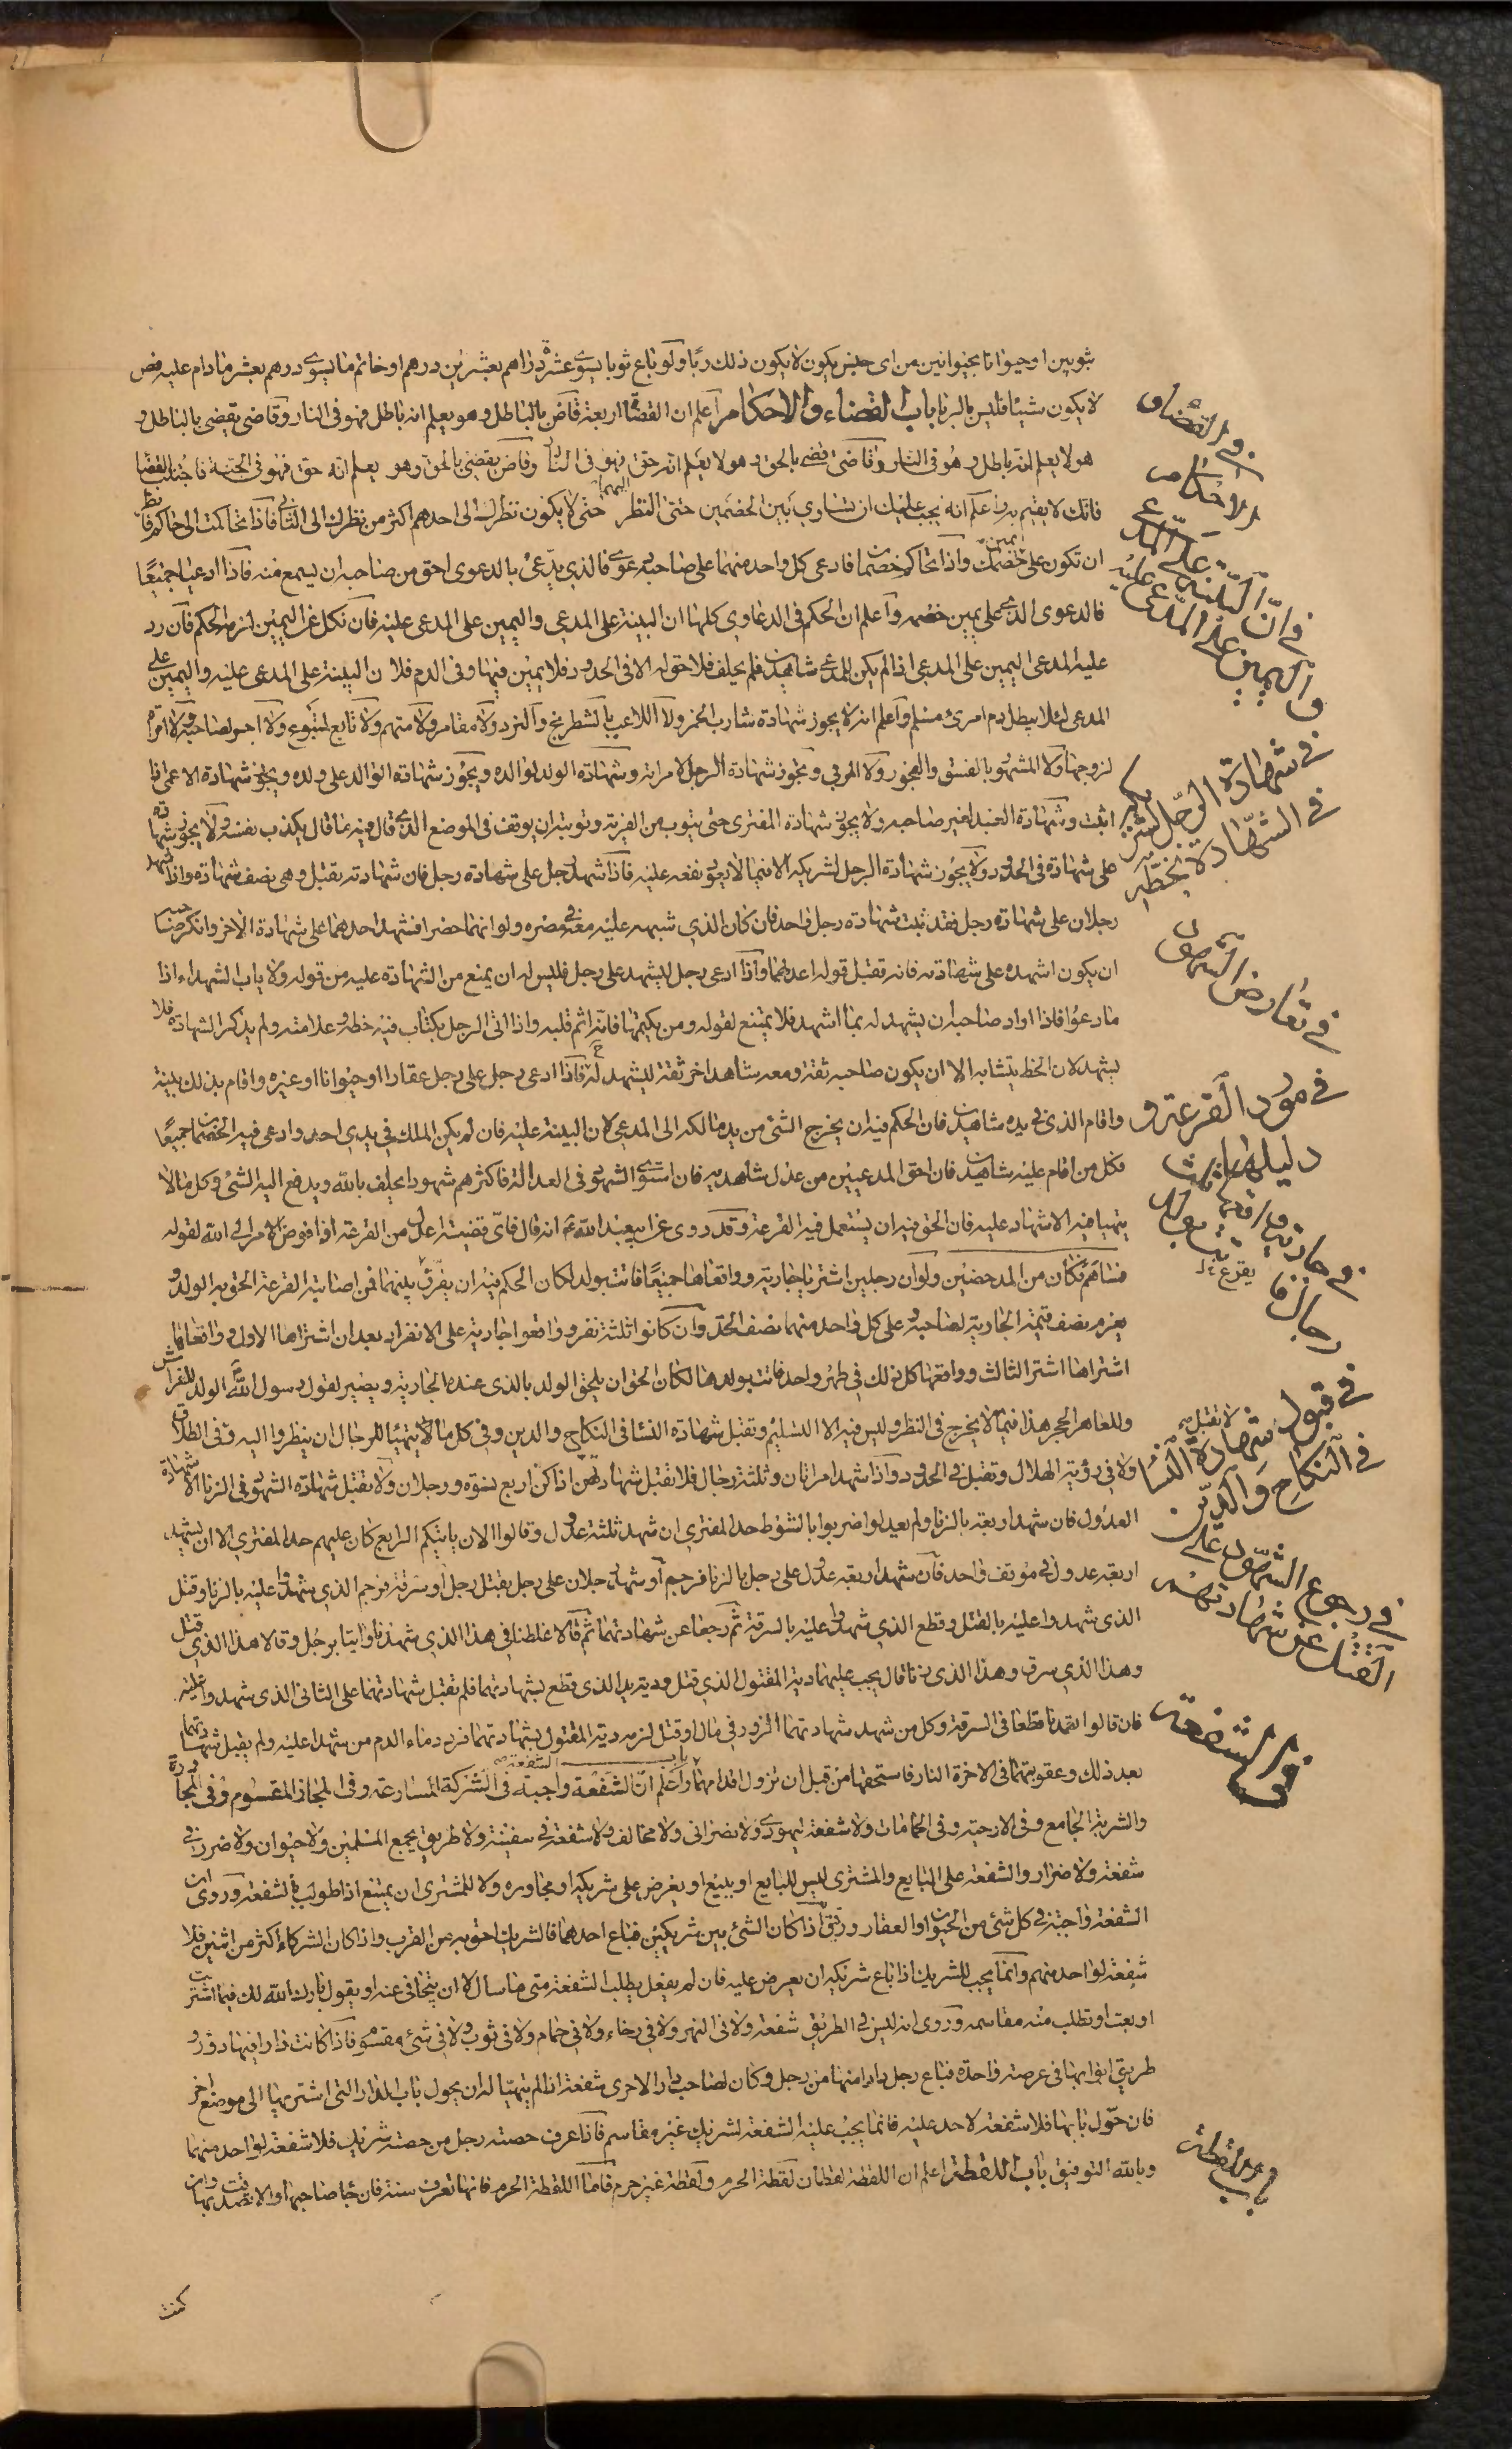 ثوبين او حيوانا بحيوانين من اى جنس يكون لا يكون ذلك ربا ولو باع ثوبا يسوى عشرة دراهم بعشرين درهم او خاتم ما يسوى درهم بعشر مادام عليه فص
لا يكون شيئا فليس بالربا باب القضاء والاحكام اعلم ان القضاة اربعة قاض بالباطل وهو يعلم انه باطل فهو فى النار وقاضى يقضى بالباطل و
هو لا يعلم انه باطل فهو فى النار وقاضى قضى بالحق وهو لا يعلم انه حق فهو فى النار وقاض يقضى بالحق وهو يعلم انه حق فهو فى الجنة فاجتنب القضا
فانك لا تقيم به واعلم انه يجب عليك ان تساوى بين الخصمين حتى النظر اليهما حتى لا يكون نظرك الى احدهم اكثر من نظرك الى الثانى فاذا تحاكمت الى حاكم فانظر
ان تكون على يمين خصمك واذا تحاكم خصمان فادعى كل واحد منهما على صاحبه دعوى فالذى يدعى بالدعوى احق من صاحبه ان يسمع منه فاذا ادعيا جميعا
فالدعوى للذى على يمين خصمه واعلم ان الحكم فى الدعاوى كلها ان البينة على المدعى واليمين على المدعى عليه فان نكل عن اليمين لزمه الحكم فان رد
عليه المدعى اليمين على المدعى اذا لم يكن للمدعى شاهدين فلم يحلف فلا حق له الا فى الحدود فلا يمين فيها وفى الدم فلان البينة على المدعى عليه واليمين على
المدعى لئلا يبطل دم امرئ مسلم واعلم انه لا يجوز شهادة شارب الخمر ولا اللاعب بالشطرنج والنرد ولا مقامر ولا متهم ولا تابع لمتبوع ولا اجير لصاحبه ولا امراة
لزوجها ولا المشهور بالفسق والفجور ولا المربى ويجوز شهادة الرجل لامراته وشهادة الولد لوالده ويجوز شهادة الوالد على ولده ويجوز شهادة الاعمى اذا
اثبت وشهادة العبد لغير صاحبه ولا يجوز شهادة المفترى حتى يتوب من الفرية وتوبته ان يوقف فى الموضع الذى قال فيه ما قال يكذب نفسه ولا يجوز شهادة
على شهادة فى الحدود ولا يجوز شهادة الرجل لشريكه الا فيما لا يعود نفعه عليه فاذا شهد رجل على شهادة رجل فان شهادته تقبل وهى نصف شهادة واذا شهد
رجلان على شهادة رجل فقد ثبت شهادة رجل واحد فان كان الذى شبهه عليه معه فى مصره ولو انهما حضرا فشهد احدهما على شهادة الاخر وانكر صاحبه
ان يكون اشهده على شهادته فانه تقبل قول اعدلهما واذا ادعى رجل ليشهد على رجل فليس له ان يمنع من الشهادة عليه من قوله ولا ياب الشهداء اذا
ما دعوا فاذا اراد صاحبه ان يشهد له بما اشهد فلا يمتنع لقوله ومن يكتمها فانه اثم قلبه واذا اتى الرجل بكتاب فيه خطه وعلامته ولم يذكر الشهادة فلا
يشهد لان الخط يتشابه الا ان يكون صاحبه ثقة ومعه شاهد اخر ثقة ليشهد له فاذا ادعى رجل على رجل عقارا او حيوانا او غيره واقام بذلك بينة
واقام الذى فى يده شاهدين فان الحكم فيه ان يخرج الشئ من يد مالكه الى المدعى لان البينة عليه فان لم يكن الملك فى يدى احد وادعى فيه الخصمان جميعا
فكل من اقام عليه شاهدين فان احق المدعيين من عدل شاهديه فان استوى الشهود فى العدالة فاكثرهم شهودا يحلف بالله ويدفع اليه الشئ وكل ما لا
يتهيا فيه الاشهاد عليه فان الحق فيه ان يستعمل فيه القرعة وقد روى عن ابى عبد الله ع انه قال فاى قضية اعدل من القرعة اذا فوض الامر الى الله لقوله
فساهم فكان من المدحضين ولو ان رجلين اشتريا جارية وواقعاها جميعا فاتت بولد لكان الحكم فيه ان يقرع بينهما فمن اصابته القرعة الحق به الولد و
يغرم نصف قيمة الجارية لصاحبه وعلى كل واحد منهما نصف الحد وان كانوا ثلثة نفر وواقعوا جارية على الانفراد بعد ان اشتراها الاول وواقعها
اشتراها اشترا الثالث وواقعها كل ذلك فى طهر واحد فاتت بولد هذا لكان الحق ان يلحق الولد بالذى عنده الجارية ويصير لقول رسول الله الولد للفراش
وللعاهر الحجر هذا فيما لا يخرج فى النظر وليس فيه الا التسليم وتقبل شهادة النسا فى النكاح والدين وفى كل ما لا يتهيئا للرجال ان ينظروا اليه وفى الطلاق
ولا فى رؤية الهلال وتقبل فى الحدود واذا شهد امراتان وثلثة رجال فلا تقبل شهادتهن اذا كن اربع نسوة ورجلان ولا تقبل شهادة الشهود فى الزنا الا شهادة
العدول فان شهد اربعة بالزنا ولم يعدلوا ضربوا بالسوط حد المفترى ان شهد ثلثة عدول وقالوا الان ياتيكم الرابع كان عليهم حد المفترى الا ان يشهد
اربعة عدول فى موقف واحد فان شهد اربعة عدول على رجل بالزنا فرجم او شهد رجلان على رجل بقتل رجل او سرقة فرجم الذى شهدوا عليه بالزنا وقتل
الذى شهدوا عليه بالقتل وقطع الذى شهدوا عليه بالسرقة ثم رجعا عن شهادتهما ثم قالا غلطنا فى هذا الذى شهدنا واتيا برجل وقالا هذا الذى قتل
وهذا الذى سرق وهذا الذى زنا قال يجب عليهما دية المقتول الذى قتل ودية يد الذى قطع بشهادتهما فلم تقبل شهادتهما على الثانى الذى شهدوا عليه
فان قالوا تعمدنا قطعا فى السرقة وكل من شهد شهادتهما الزور فى مال او قتل لزمه دية المقتول بشهادتهما فرد دماء الدم من شهدا عليه ولم يقبل شهادتهما
بعد ذلك وعقوبتهما فى الاخرة النار فاستحقها من قبل ان تزول اقدامهما باب الشفعة واعلم ان الشفعة واجبة فى الشركة المشارعة وفى المجاز المقسوم وفى المجاورة
والشربة الجامع وفى الارحية وفى الحمامات ولا شفعة ليهودى ولا نصرانى ولا مخالف ولا شفعة فى سفينة ولا طريق يجمع المسلمين ولا حيوان ولا ضرر فى
شفعة ولا ضرار والشفعة على البايع والمشترى ليس للبايع او يبيع او يعرض على شريكه او مجاوره ولا للمشترى ان يمتنع اذا طولب بالشفعة وروى ان
الشفعة واجبة فى كل شئ من الحيوان والعقار ورقيق اذا كان الشئ بين شريكين فباع احدهما فالشريك احق به من القرب واذا كان الشركاء اكثر من اثنين فلا
شفعة لواحد منهم وانما يجب للشريك اذا باع شريكه ان يعرض عليه فان لم يفعل بطلب الشفعة متى ما سال الا ان يتجافى عنه او يقول بارك الله لك فيما اشتريت
او بعت او تطلب منه مقاسمه وروى انه ليس فى الطريق شفعة ولا فى النهر ولا فى رحاء ولا فى حمام ولا فى ثوب ولا فى شئ مقسوم فاذا كانت دارا فيها دور و
طريق ابوابها فى عرصة واحدة فباع رجل دارا منها من رجل وكان لصاحب دار الاخرى شفعة اذا لم يتهيا له ان يحول باب الدار التى اشتريها الى موضع اخر
فان حول بابها فلا شفعة لاحد عليه فانما يجب عليه الشفعة لشريك غير مقاسم فاذا عرف حصته رجل من حصته شريك فلا شفعة لواحد منهما
وبالله التوفيق باب اللقطة اعلم ان اللقطة لقطتان لقطة الحرم ولقطة غير حرم فاما اللقطة الحرم فانها تعرف سنة فان جا صاحبها والا تصدقت بها
فى القضاء و
الاحكام
فى ان البينة على المدعى
واليمين على المدعى عليه
فى شهادة الرجل لشريكه
فى الشهادة بخطه
فى تعارض الشهود
فى مورد القرعة و
دليلها
فى جارية واقعها
رجال
فى قبول شهادة النسا
فى النكاح والدين
لا تقبل
فى رجوع الشهود على
القتل عن شهادتهم
فى الشفعة
باب اللقطة
كنت